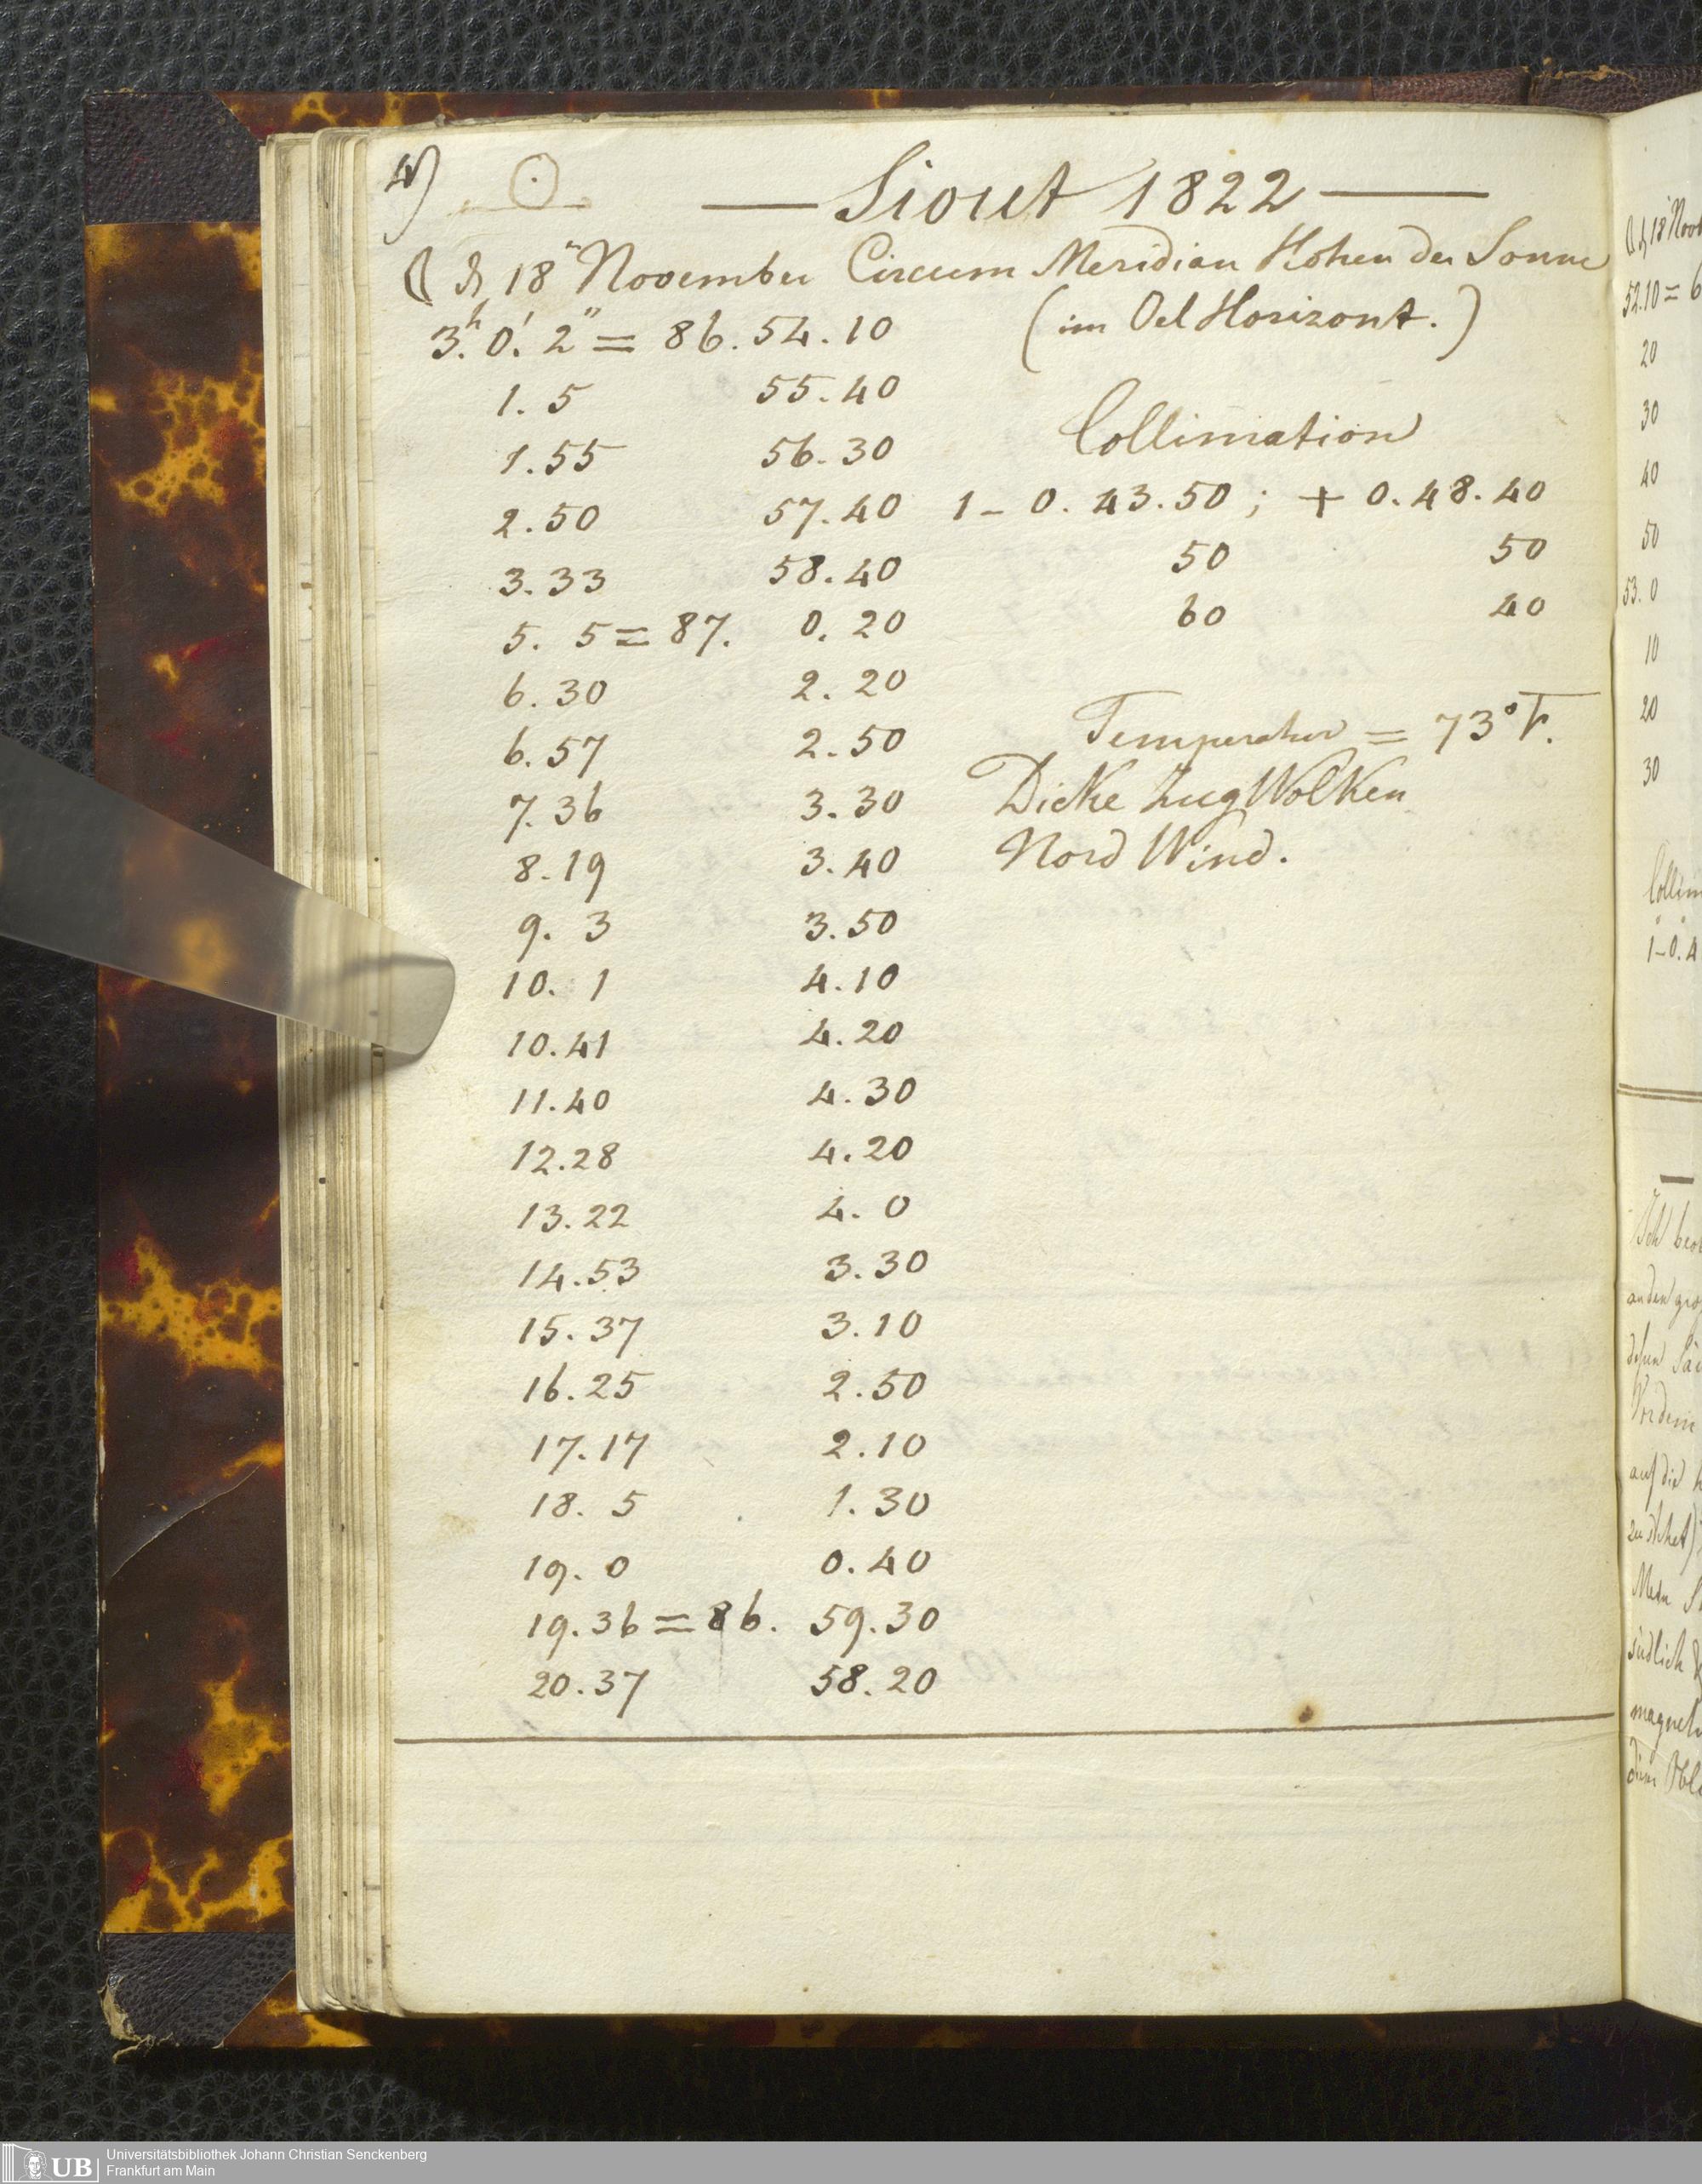 4) ☉ — Siout 1822 —
☾ d. 18ⁿ November Circum Meridian Hohen der Sonne
3.ʰ 0.′ 2″ = 86. 54. 10 (im Oel Horizont.)
1. 5 55. 40
Collimation
1. 55 56. 30
2. 50 57. 40 1 - 0. 43. 50 ; + 0. 48. 40
3. 33 58. 40 50 50
5. 5 = 87. 0. 20 60 40
6. 30 2. 20
6. 57 2. 50 Temperatur = 73° F.
7. 36 3. 30 Dicke Zug Wolken
8. 19 3. 40 Nord Wind.
9. 3 3. 50
10. 1 4. 10
10. 41 4. 20
11. 40 4. 30
12. 28 4. 20
13. 22 4. 0
14. 53 3. 30
15. 37 3. 10
16. 25 2. 50
17. 17 2. 10
18. 5 1. 30
19. 0 0. 40
19. 36 = 86. 59. 30
20. 37 58. 20
52.10 = 6
20
30
40
50
53. 0
10
20
30
1 - 0. 4
südlich
UB Universitätsbibliothek Johann Christian Senckenberg
Frankfurt am Main